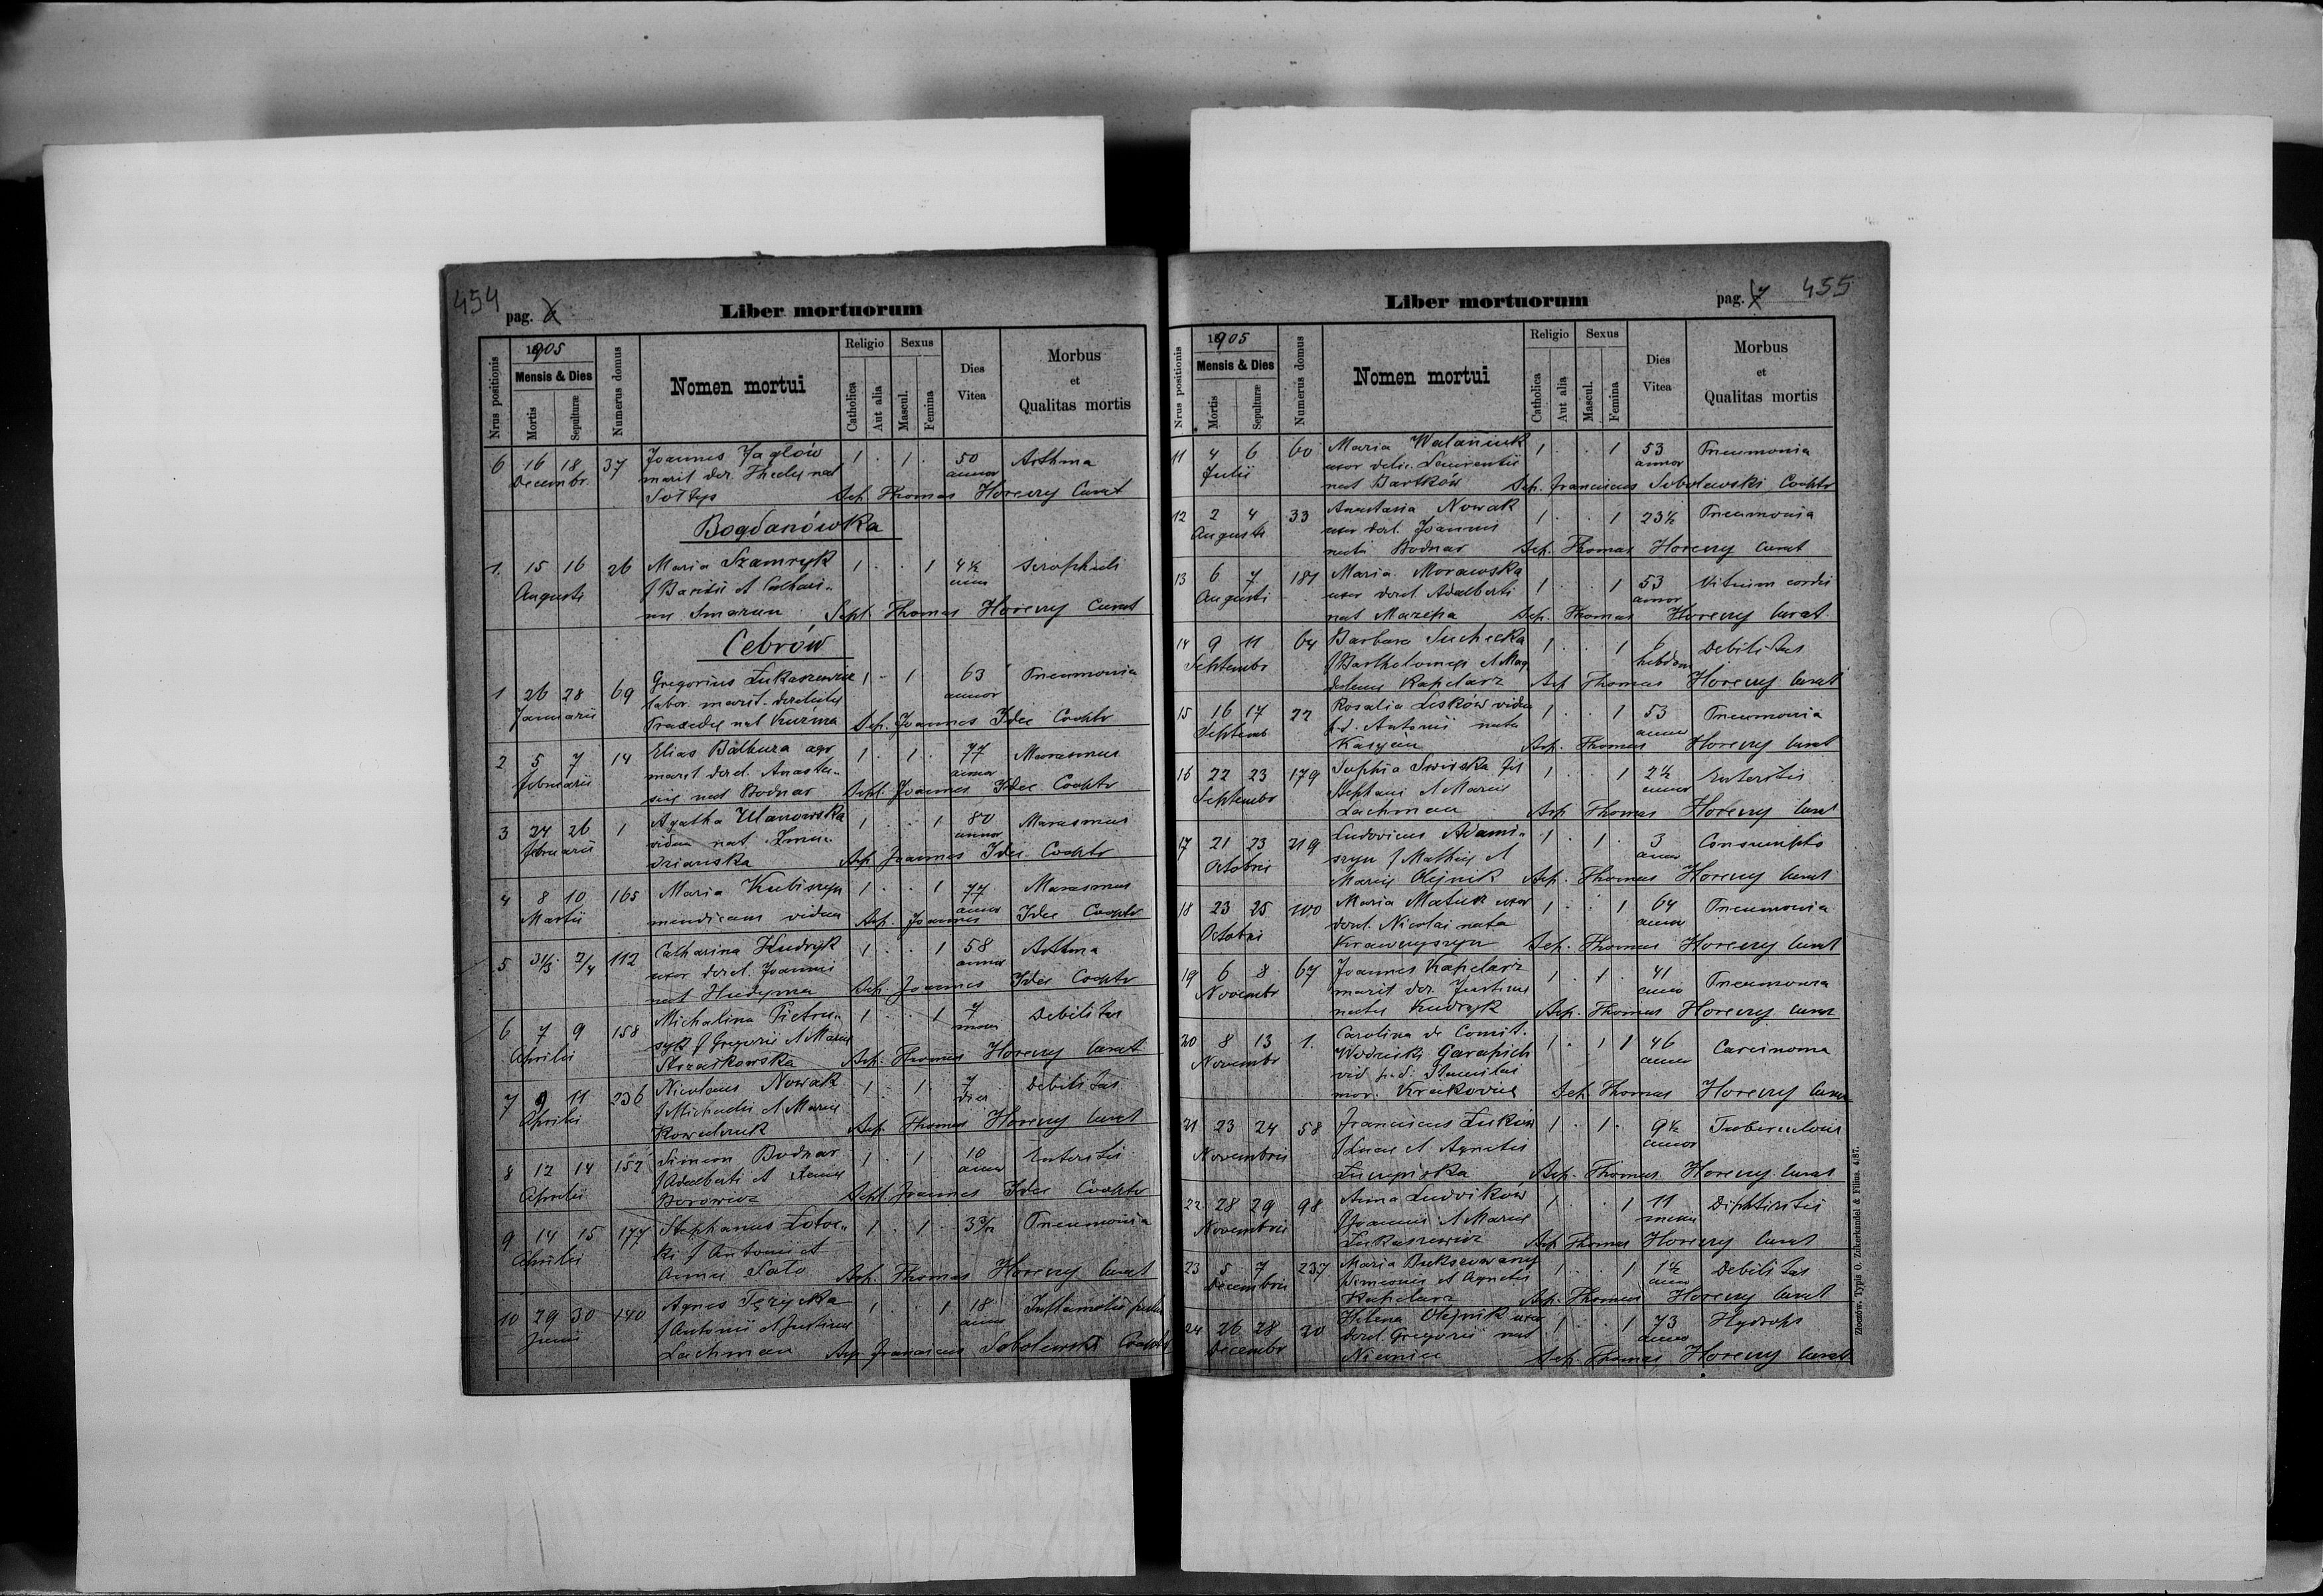 454
pag. 6
Liber mortuorum
Nrus positionis
1905
Mensis & Dies
Mortis
Sepulturæ
Numerus domus
Nomen mortui
Religio
Catholica
Aut alia
Sexus
Mascul.
Femina
Dies
Vitea
Morbus
et
Qualitas mortis
6 16 18 37 Joannes Jaglów 1 1 50 Asthma
Decembr. marit der. Theclę nat annor
Sołtys Sep. Thomas Horeczy Curat
Bogdanówka
1. 15 16 26 Maria Szamryk 1 1 4½
Augusti f Basilii et Cathari-
Sept. Thomas Horeczy Curat
Cebrów
1 26 28 69 Gregorius Łukaszewicz 1 1 63 Pneumonia
Januarii labor. marit. derelictus annor
Praxedis nat Kuźma Sep. Joannes Idec Cooptr
2 5 7 14 Elias Bałbuza agr 1 1 77 Marasmus
Februarii marit derel. Anasta- annor
się nat Bodnar Sept. Joannes Idec Cooptr
3 24 26 1 Agatha Ulanowska 1 1 80 Marasmus
Februarii vidua nat annor
Sep Joannes Idec Cooptr
4 8 10 165 Maria Kubiszyn 1 1 77 Marasmus
Martii mendicans vidua Sep. Joannes annor Idec Cooptr
5 31/3 2/4 112 Catharina Kudryk 1 1 58 Asthma
uxor derel. Joannis annor
nat Hudyma Sep. Joannes Idec Cooptr
6 7 9 158 Michalina Pietru- 1 1 7 Debilitas
Aprilis szyk f Gregorii et Marię
Sep. Thomas Horeczy Curat
7 9 11 236 Nicolaus Nowak 1 1 7 Debilitas
Aprilis f Michaelis et Marię dies
Kowalczuk Sep. Thomas Horeczy Curat
8 12 14 152 Simeon Bodnar 1 1 10 Enteritis
Aprilis f Adalberti et annor
Borowicz Sept. Joannes Idec Cooptr
9 14 15 177 Stephanus 1 1 Pneumonia
Aprilis f Antonii et
Annę Sep. Thomas Horeczy Curat
10 29 30 140 Agnes Tęzycka 1 1 18
Junii f Antonii et Justinę annor
Lachman Sep. Franciscus Sobolewski Cooptr
Liber mortuorum
pag. 7
455
Nrus positionis
1905
Mensis & Dies
Mortis
Sepulturæ
Numerus domus
Nomen mortui
Religio
Catholica
Aut alia
Sexus
Mascul.
Femina
Dies
Vitea
Morbus
et
Qualitas mortis
11 4 6 60 Maria Walaniuk 1 1 53 Pneumonia
Julii uxor Laurentii annor
nat Bartków Sep. Franciscus Sobolewski Cooptr
12 2 4 33 Anastasia Nowak 1 1 23½ Pneumonia
Augusti uxor derel. Joannis
nata Bodnar Sep. Thomas Horeczy Curat
13 6 7 181 Maria Morawska 1 1 53 Vitium cordis
Augusti uxor derel. Adalberti annor
nat Mazepa Sep. Thomas Horeczy Curat
14 9 11 64 Barbara Suchecka 1 1 6 Debilitas
Septembr f Bartholomęi et Mag hebdom
dalenę Kapelarz Sep Thomas Horeczy Curat
15 16 17 22 Rosalia Leśków vidua 1 1 53 Pneumonia
Septemb p.d. Antonii nata annor
Kasyan Sep. Thomas Horeczy Curat
16 22 23 179 Sophia Swirska fil 1 1 2½ Enteritis
Septembr Stephani et Marię annor
Lachman Sep Thomas Horeczy Curat
17 21 23 219 Ludovicus Adami- 1 1 3 Consumptio
Octobris szyn f Mathię et annor
Marię Olejnik Sep. Thomas Horeczy Curat
18 23 25 200 Maria Matuk uxor 1 1 64 Pneumonia
Octobri derel. Nicolai nata annor
Krawczyszyn Sep. Thomas Horeczy Curat
19 6 8 67 Joannes Kapelarz 1 1 41 Pneumonia
Novembr marit der. Justinę annor
natę Kudryk Sep. Thomas Horeczy Curat
20 8 13 1. Carolina de Comit. 1 1 1 46 Carcinoma
Novembr Wodzicki Garapich annor
vid p.d. Stanislai
mor. Krakovię Sep Thomas Horeczy Curat
21 23 24 58 Franciscus Łuków 1 1 9½ Tuberculosis
Novembris f Lucę et Agnetis annor
Sep. Thomas Horeczy Curat
22 28 29 98 Anna Ludwików 1 1 11 Diphtiritis
Novembris f Joannis et Marię
Łukaszewicz Sep Thomas Horeczy Curat
23 5 7 237 Maria 1 1 1½ Debilitas
Decembris Simeonis et Agnetis annor
Kapelarz Sep. Thomas Horeczy Curat
24 26 28 20 Helena Olejnik uxor 1 1 73 Hydrops
Decembr derel. Gregorii nat annor
Sep. Thomas Horeczy Curat
Złoczów. Typis O. Zukerkandel & Filius. 4/87.